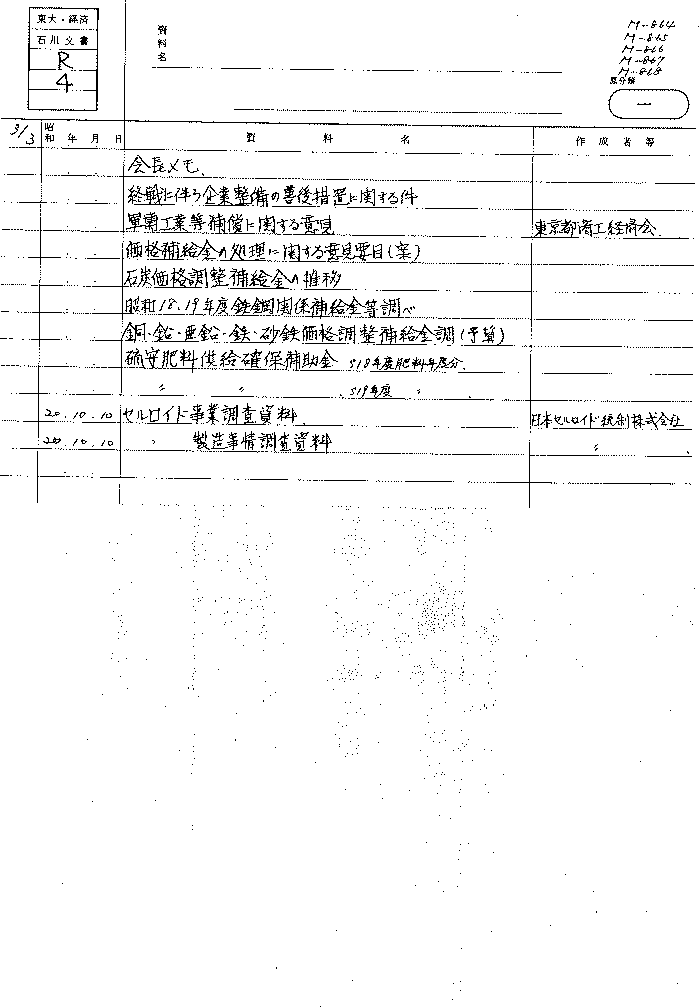 東大・経済
石川文書
R
4
資料名
M-864
M-865
M-866
M-867
M-868
原分類
一
3/3
昭和 年 月 日 資料名 作成者等
会長メモ.
終戦に伴う企業整備の善後措置に関する件
軍需工業等補償に関する意見 東京都商工経済会
価格補給金の処理に関する意見要目(案)
石炭価格調整補給金の推移
昭和18.19年度鉄鋼関係補給金等調べ
銅・鉛・亜鉛・鉄・砂鉄価格調整補給金調(予算)
硫安肥料供給確保補助金 S18年度肥料年度分.
〃 〃 S19年度 〃
20.10.10 セルロイド事業調査資料. 日本セルロイド統制株式会社
20.10.10 〃 製造事情調査資料 〃